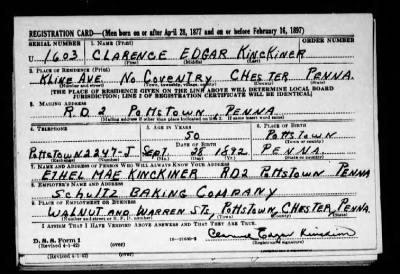 REGISTRATION CARD—(Men born on or after April 28, 1877 and on or before February 16, 1897)
SERIAL NUMBER 1. NAME (Print) ORDER NUMBER
U 1603 CLARENCE EDGAR KINCKINER
(First) (Middle) (Last)
2. PLACE OF RESIDENCE (Print)
KLINE AVE. NO COVENTRY CHESTER PENNA.
(Number and street) (Town, township, village, or city) (County) (State)
[THE PLACE OF RESIDENCE GIVEN ON THE LINE ABOVE WILL DETERMINE LOCAL BOARD
JURISDICTION; LINE 2 OF REGISTRATION CERTIFICATE WILL BE IDENTICAL]
3. MAILING ADDRESS
R.D.2 POTTSTOWN PENNA.
[Mailing address if other than place indicated on line 2. If same insert word same]
4. TELEPHONE 5. AGE IN YEARS 6. PLACE OF BIRTH
50 POTTSTOWN
DATE OF BIRTH (Town or county)
POTTSTOWN 2247-J SEPT. 28 1892 PENNA.
(Exchange) (Number) (Mo.) (Day) (Yr.) (State or country)
7. NAME AND ADDRESS OF PERSON WHO WILL ALWAYS KNOW YOUR ADDRESS
ETHEL MAE KINCKINER RD2 POTTSTOWN PENNA
8. EMPLOYER'S NAME AND ADDRESS
SCHULTZ BAKING COMPANY
9. PLACE OF EMPLOYMENT OR BUSINESS
WALNUT AND WARREN STS. POTTSTOWN, CHESTER, PENNA.
(Number and street or R. F. D. number) (Town) (County) (State)
I AFFIRM THAT I HAVE VERIFIED ABOVE ANSWERS AND THAT THEY ARE TRUE.
D. S. S. Form 1 Clarence Edgar Kinckiner
(Revised 4-1-42) (over) (Registrant's signature)